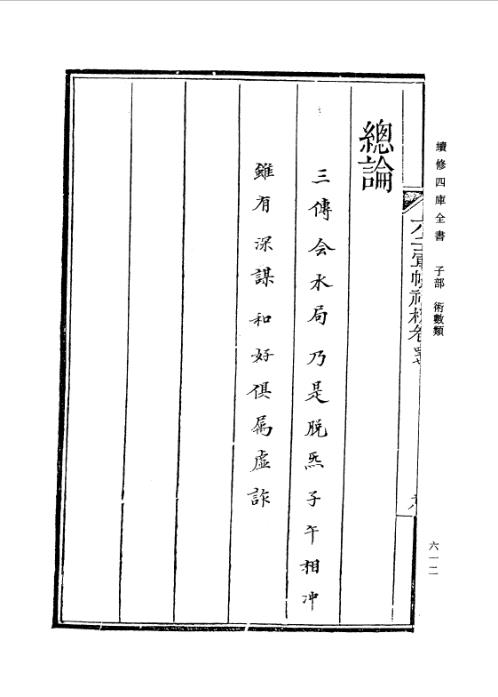 續修四庫全書 子部 術數類
六一二
六壬軍帳神機卷
總論
三傳会水局乃是脫炁子午相冲
雖有深謀和好俱属虛詐